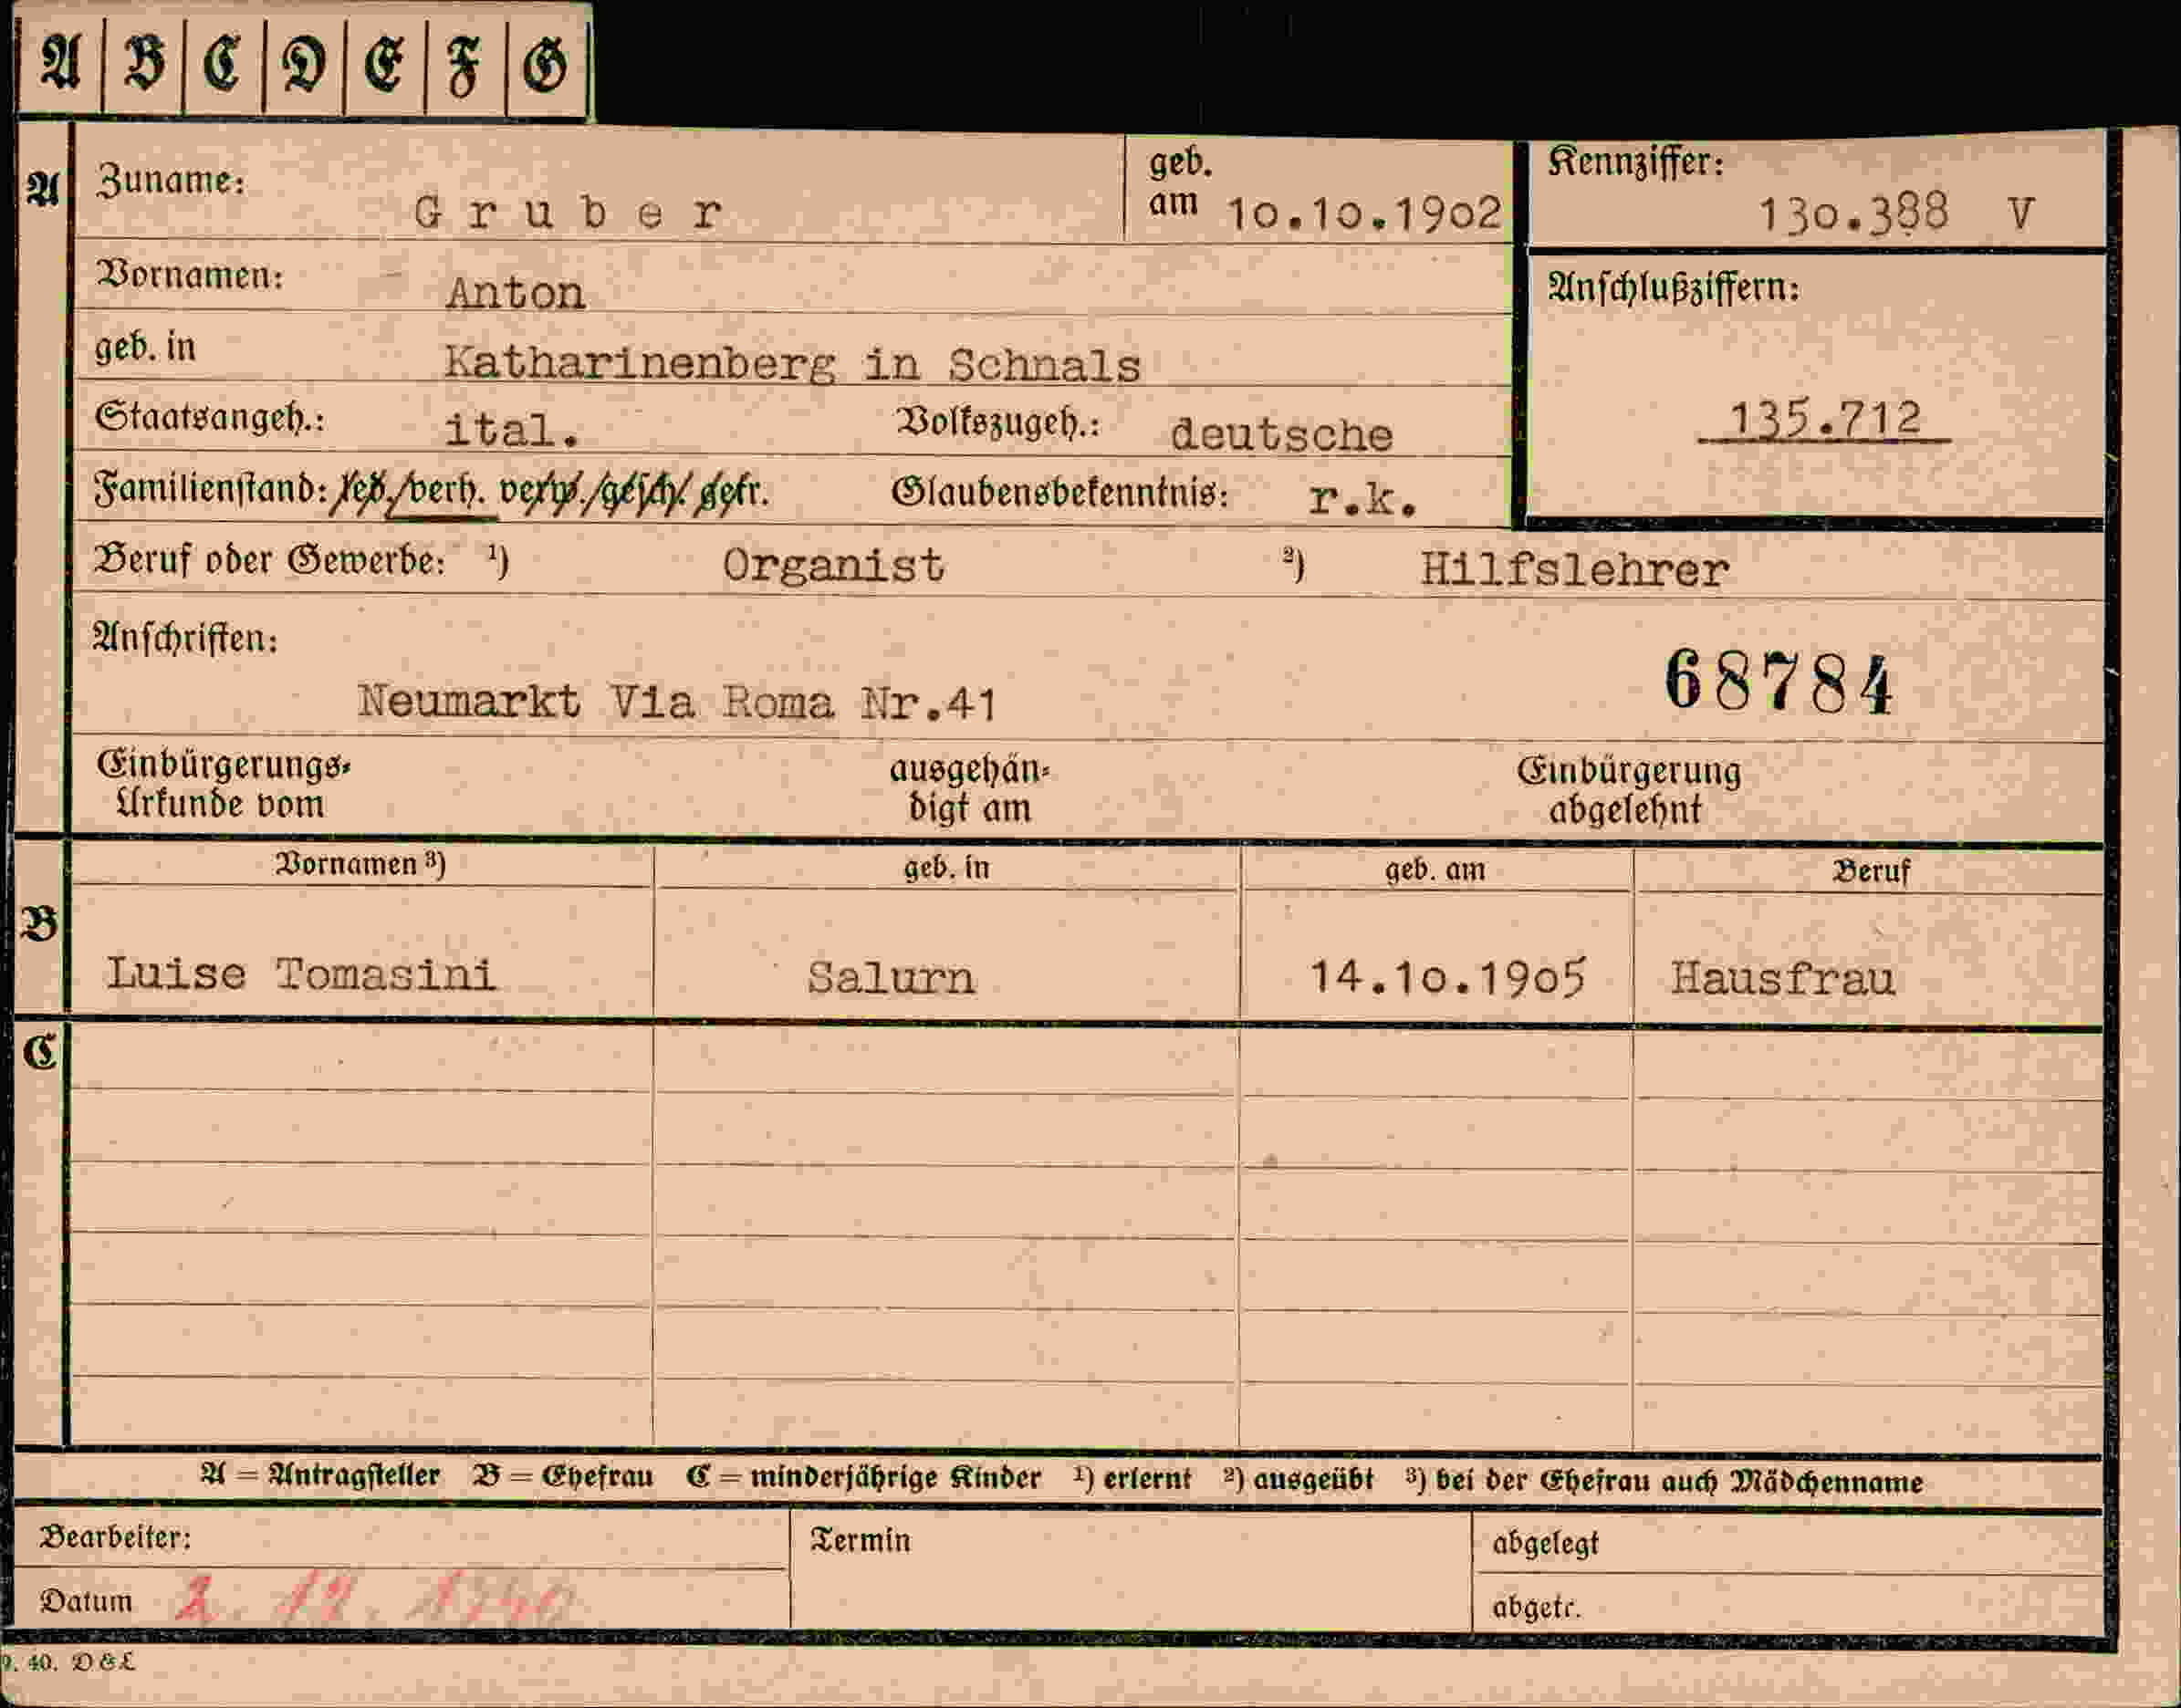 A B C D E F G
A Zuname: Gruber geb. am 10.10.1902 Kennziffer: 130.388 V
Vornamen: Anton Anschlußziffern:
geb. in Katharinenberg in Schnals
Staatsangeh.: ital. Volkszugeh.: deutsche 135.712
Familienstand: led./verh. verw./gesch. getr. Glaubensbekenntnis: r.k.
Beruf oder Gewerbe: ¹) Organist ²) Hilfslehrer
Anschriften: 68784
Neumarkt Via Roma Nr.41
Einbürgerungs- ausgehän- Einbürgerung
Urkunde vom digt am abgelehnt
Vornamen ³) geb. in geb. am Beruf
B Luise Tomasini Salurn 14.10.1905 Hausfrau
C
A = Antragsteller B = Ehefrau C = minderjährige Kinder ¹) erlernt ²) ausgeübt ³) bei der Ehefrau auch Mädchenname
Bearbeiter: Termin abgelegt
Datum 2. 12. 1940 abgetr.
9. 40. D&L